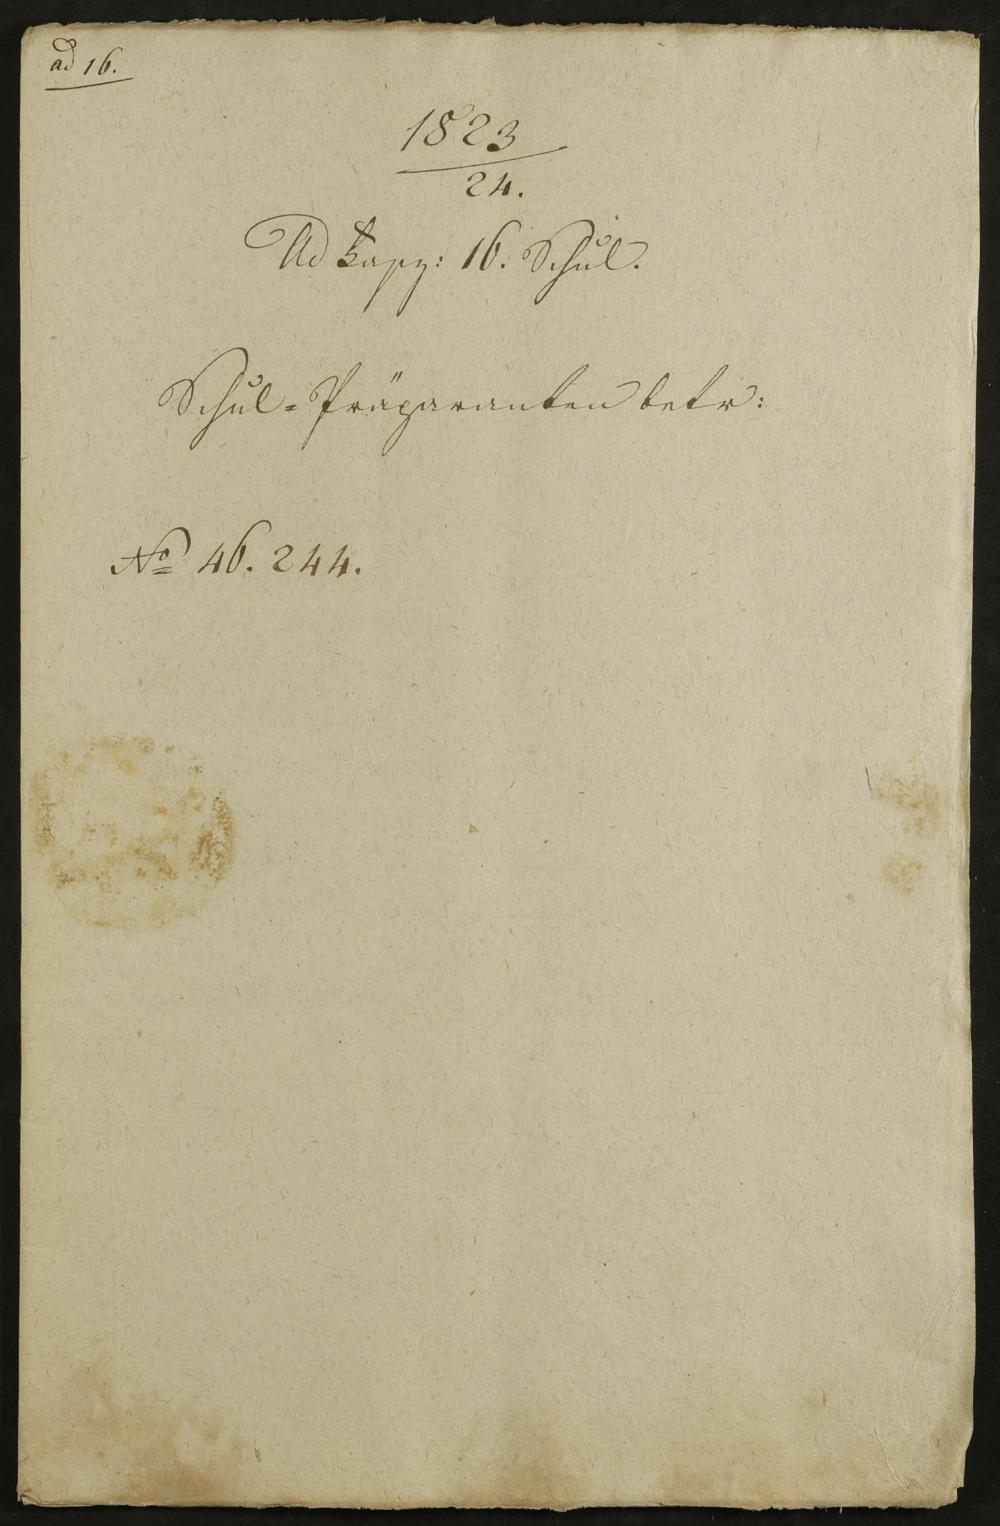 ad 16.
1823
24.
Ad Fasz: 16. Schul.
Schul=Präparanten betr:
No 46. 244.